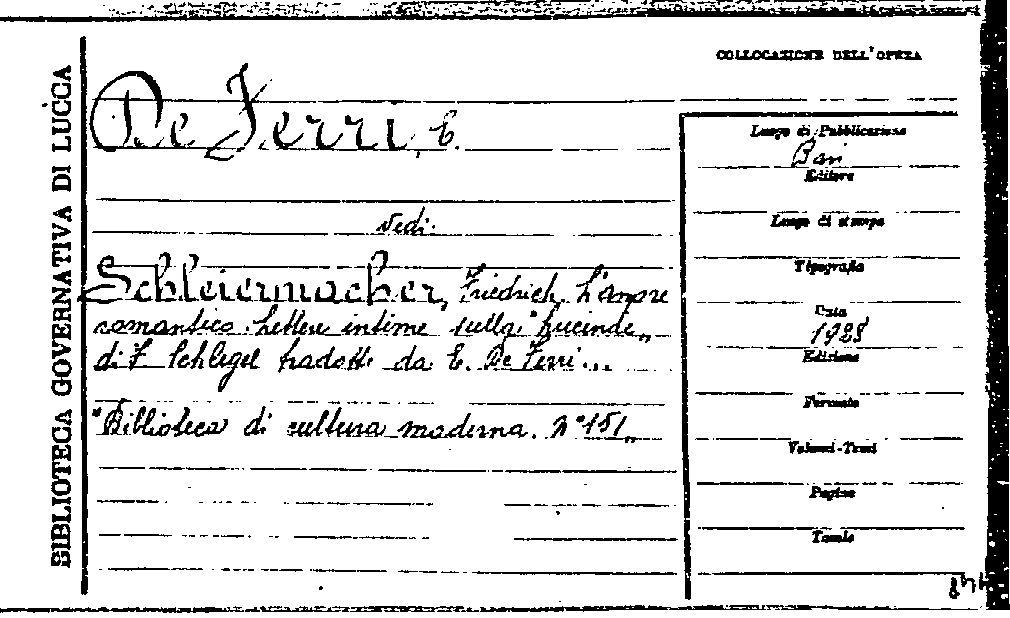 BIBLIOTECA GOVERNATIVA DI LUCCA
COLLOCAZIONE DELL'OPERA
De Ferri, E.
vedi:
Schleiermacher, Friedrich, L'amore
romantico. Lettere intime sulla "Lucinde„
di F. Schlegel tradotte da E. De Ferri...
"Biblioteca di cultura moderna. N° 151„
Luogo di Pubblicazione
Bari
Editore
Luogo di stampa
Tipografia
Data
1928
Edizione
Formato
Volumi-Tomi
Pagine
Tavole